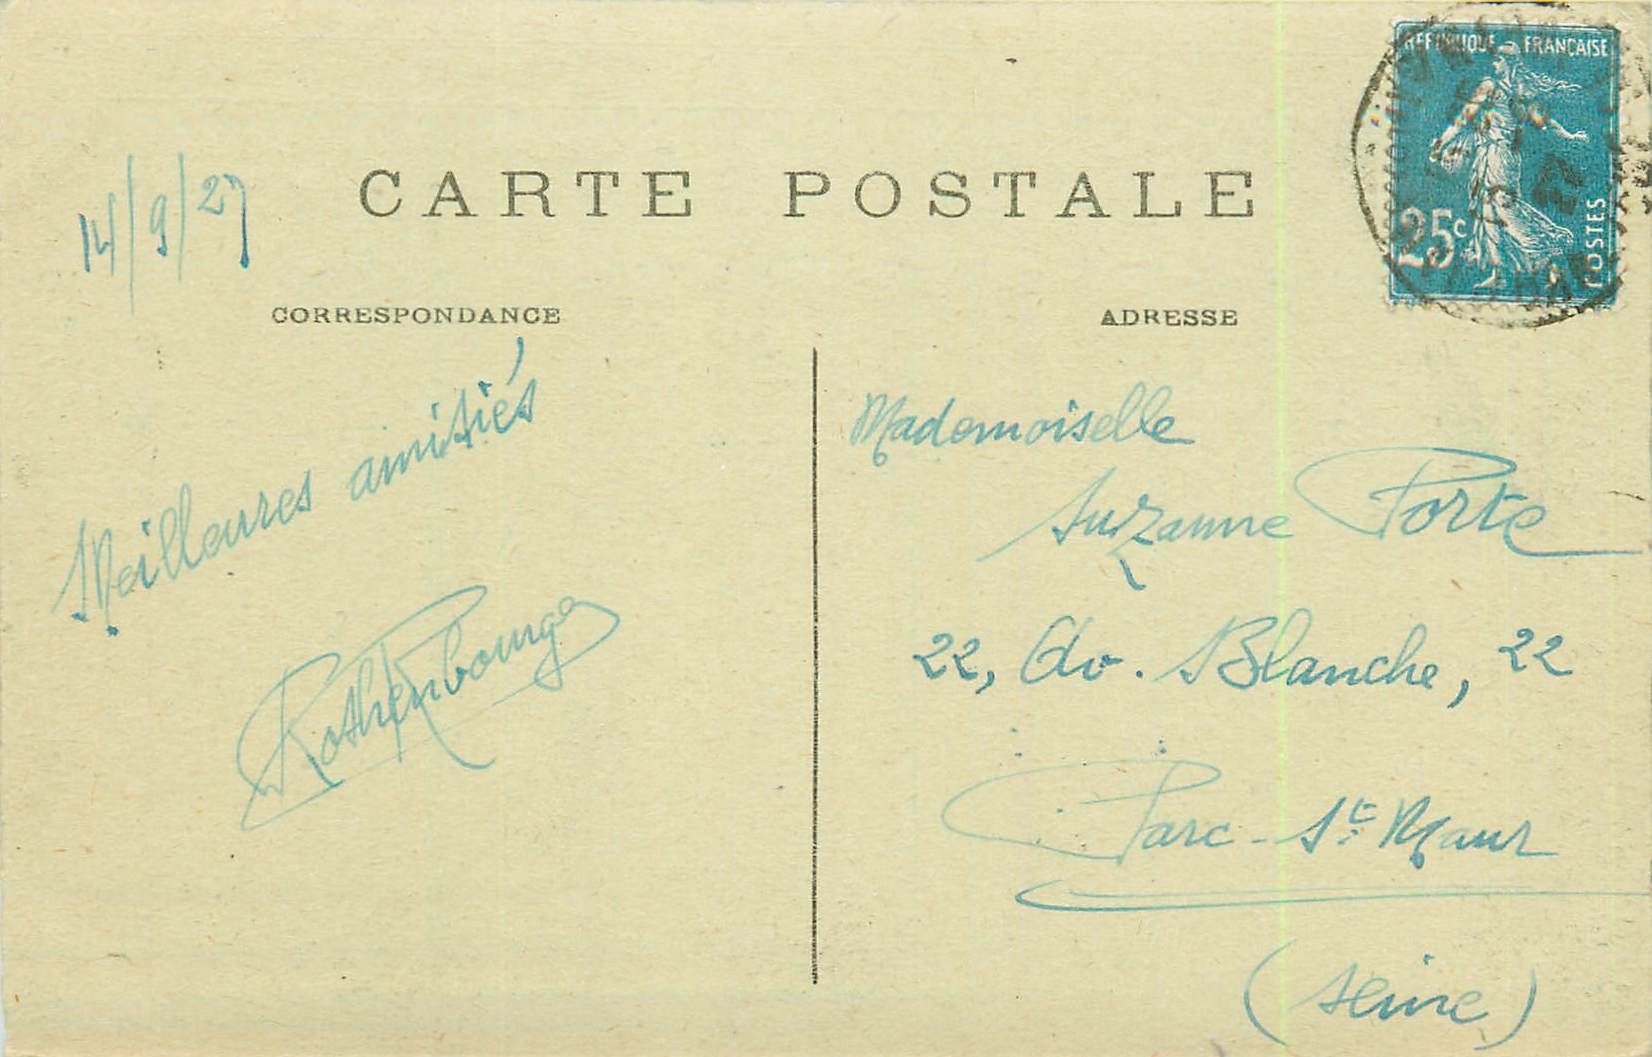 RÉPUBLIQUE FRANÇAISE
25c
POSTES
27
CARTE POSTALE
14/9/27
CORRESPONDANCE
Meilleures amitiés
Rothenbourg
ADRESSE
Mademoiselle
Suzanne Porte
22, Av. Blanche, 22
Parc-St Maur
(Seine)